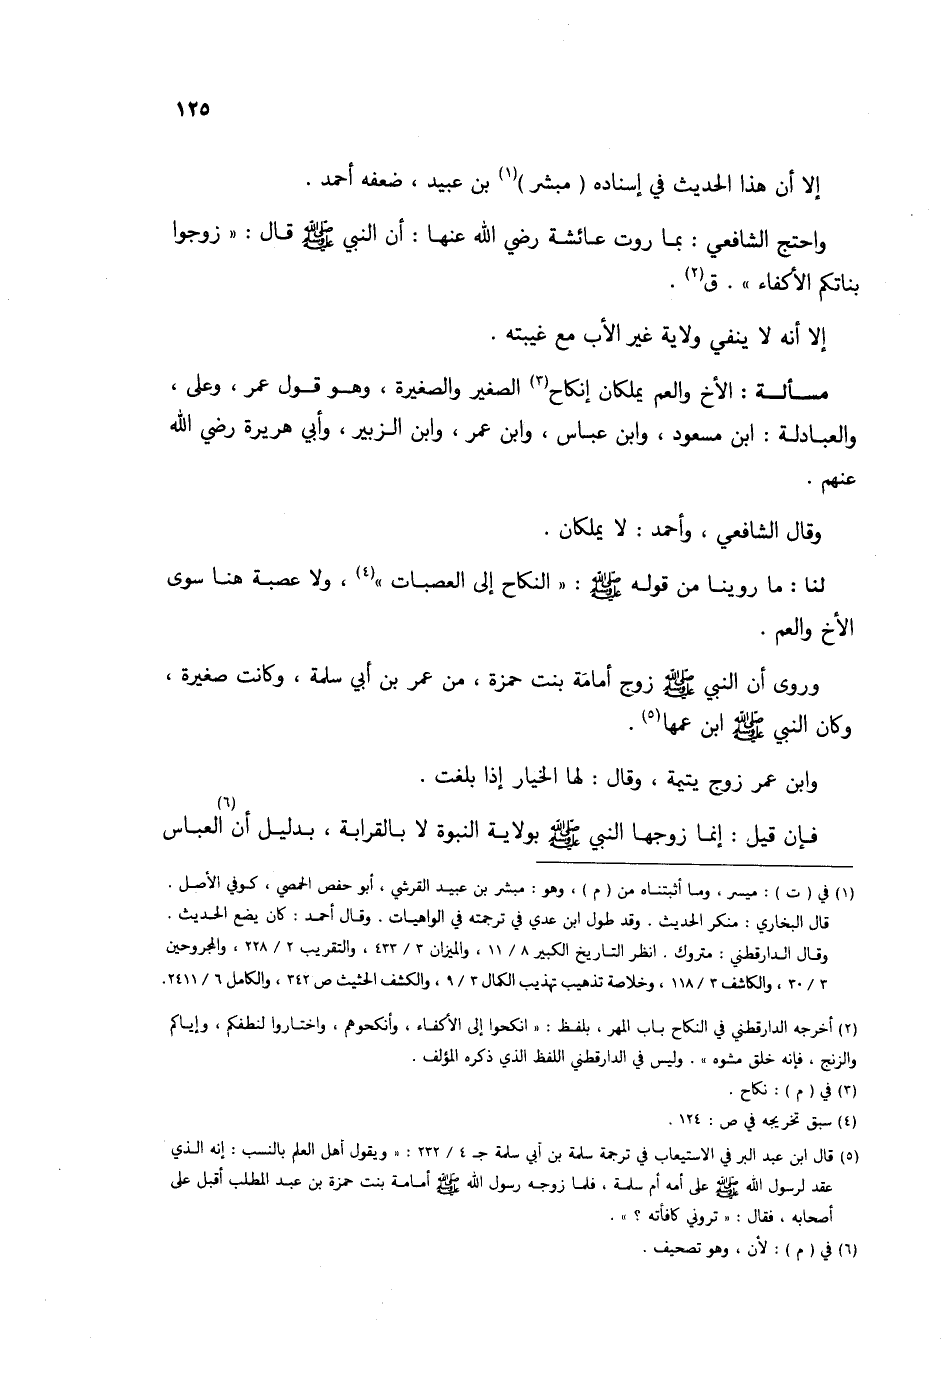 ١٢٥
إلا أن هذا الحديث في إسناده ( مبشر )(١) بن عبيد ، ضعفه أحمد .
واحتج الشافعي : بما روت عائشة رضي الله عنها : أن النبي ﷺ قال : « زوجوا
بناتكم الأكفاء » . ق(٢) .
إلا أنه لا ينفي ولاية غير الأب مع غيبته .
مسألة : الأخ والعم يملكان إنكاح(٣) الصغير والصغيرة ، وهو قول عمر ، وعلى ،
والعبادلة : ابن مسعود ، وابن عباس ، وابن عمر ، وابن الزبير ، وأبي هريرة رضي الله
عنهم .
وقال الشافعي ، وأحمد : لا يملكان .
لنا : ما روينا من قوله ﷺ : « النكاح إلى العصبات »(٤) ، ولا عصبة هنا سوى
الأخ والعم .
وروى أن النبي ﷺ زوج أمامَة بنت حمزة ، من عمر بن أبي سلمة ، وكانت صغيرة ،
وكان النبي ﷺ ابن عمها(٥) .
وابن عمر زوج يتيمة ، وقال : لها الخيار إذا بلغت .
فإن قيل : إنما زوجها النبي ﷺ بولاية النبوة لا بالقرابة ، بدليل أن(٦) العباس
(١) في ( ت ) : ميسر ، وما أثبتناه من ( م ) ، وهو : مبشر بن عبيد القرشي ، أبو حفص الحمصي ، كوفي الأصل .
قال البخاري : منكر الحديث . وقد طول ابن عدي في ترجمته في الواهيات . وقال أحمد : كان يضع الحديث .
وقال الدارقطني : متروك . انظر التاريخ الكبير ٨ / ١١ ، والميزان ٣ / ٤٣٣ ، والتقريب ٢ / ٢٢٨ ، والمجروحين
٣ / ٣٠ ، والكاشف ٣ / ١١٨ ، وخلاصة تذهيب تهذيب الكمال ٣ / ٩ ، والكشف الحثيث ص ٣٤٢ ، والكامل ٦ / ٢٤١١.
(٢) أخرجه الدارقطني في النكاح باب المهر ، بلفظ : « انكحوا إلى الأكفاء ، وأنكحوهم ، واختاروا لنطفكم ، وإياكم
والزنج ، فإنه خلق مشوه » . وليس في الدارقطني اللفظ الذي ذكره المؤلف .
(٣) في ( م ) : نكاح .
(٤) سبق تخريجه في ص : ١٢٤ .
(٥) قال ابن عبد البر في الاستيعاب في ترجمة سلمة بن أبي سلمة جـ ٤ / ٢٣٢ : « ويقول أهل العلم بالنسب : إنه الذي
عقد لرسول الله ﷺ على أمه أم سلمة ، فلما زوجه رسول الله ﷺ أمامة بنت حمزة بن عبد المطلب أقبل على
أصحابه ، فقال : « تروني كافأته ؟ » .
(٦) في ( م ) : لأن ، وهو تصحيف .